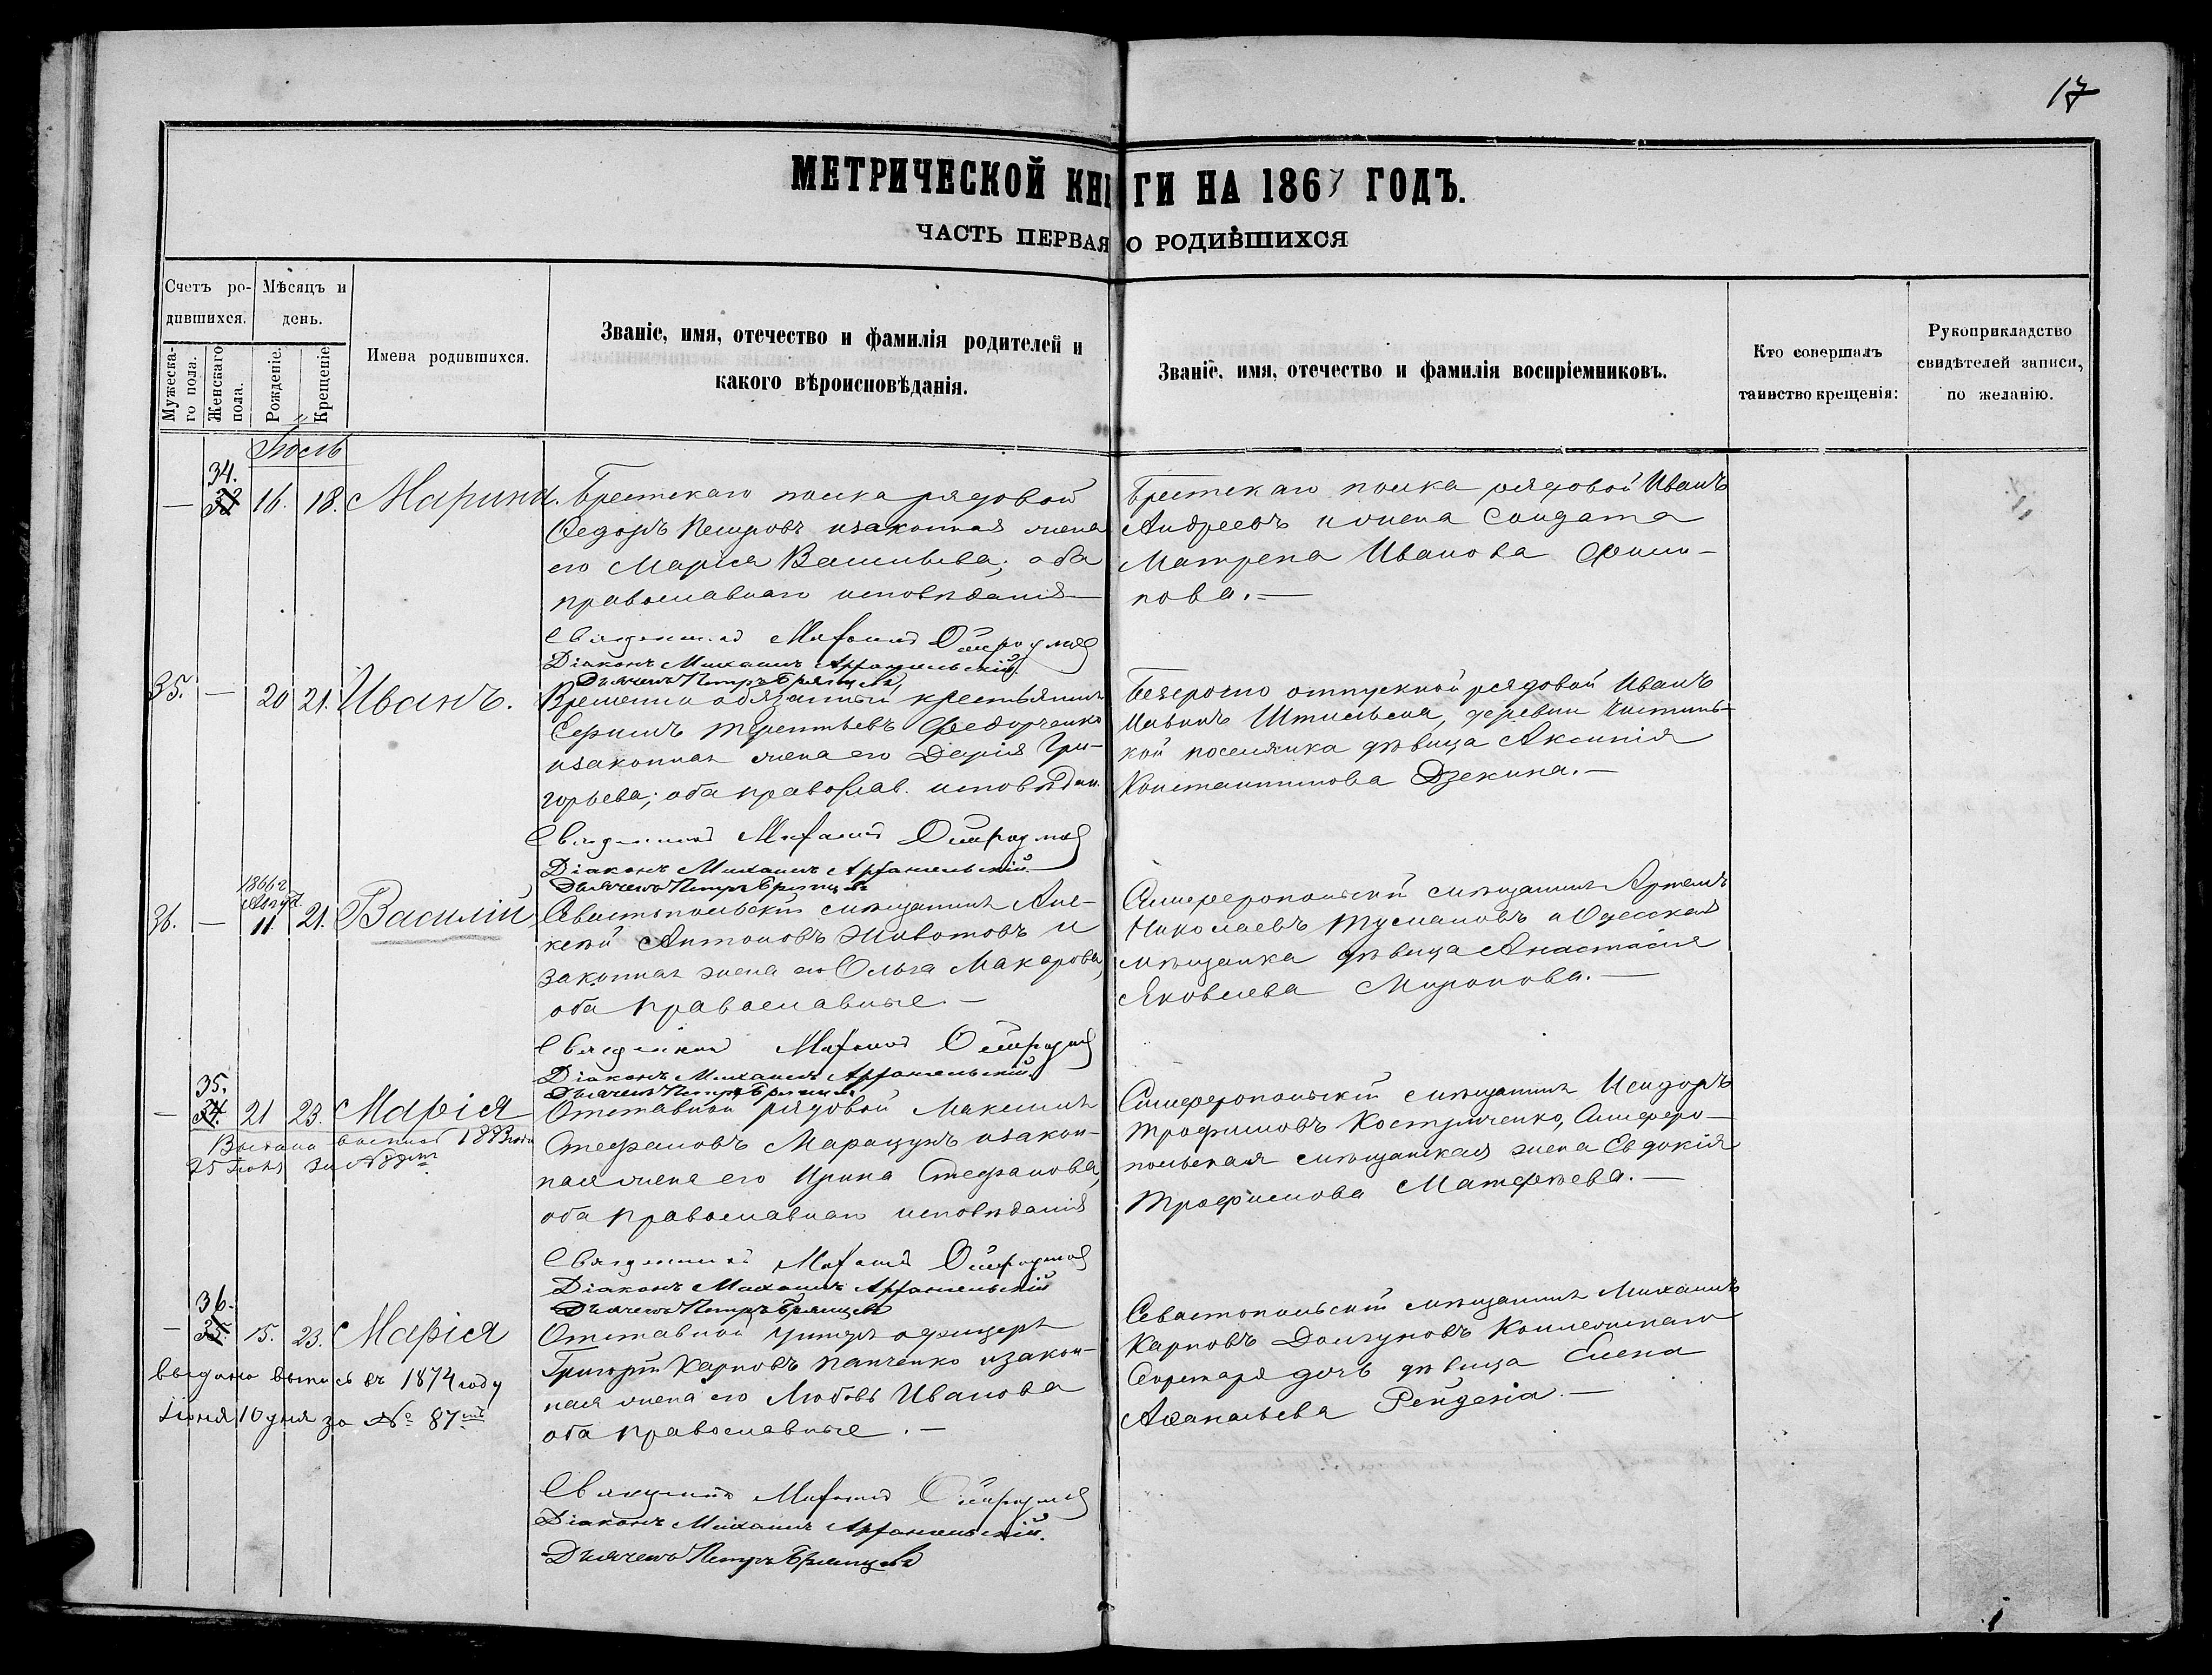 17
МЕТРИЧЕСКОЙ КНИГИ НА 1867 ГОДЪ.
ЧАСТЬ ПЕРВАЯ О РОДИВШИХСЯ
Счетъ ро-
дившихся.
Мѣсяцъ и
день.
Мужеска-
го пола.
Женскаго
пола.
Рожденіе.
Крещеніе
Имена родившихся.
Званіе, имя, отечество и фамилія родителей и
какого вѣроисповѣданія.
Званіе, имя, отечество и фамилія воспріемниковъ.
Кто совершалъ
таинство крещенія:
Рукоприкладство
свидѣтелей записи,
по желанію.
Іюль
34.
— 16. 18. Марина.
Брестскаго полка рядовой
Ѳедоръ Петровъ изаконная жена
его Марія Васильева; оба
православнаго исповѣданія —
Брестскаго полка рядовой Иванъ
Андреевъ и жена Солдата
Матрена Иванова Филип-
пова. —
Священникъ
Діаконъ Михаилъ Архангельскій.
Дьячекъ Петръ Брянцевъ
35. — 20 21. Иванъ.
Временно обязанный крестьянинъ
Ефимъ Терентьевъ Федорченко
изаконная жена его Дарія Гри-
горьева; оба православ. исповѣдан.
Безсрочно отпускной рядовой Иванъ
деревни
кой поселянка дѣвица Аксинія
Константинова Дзекина. —
Священникъ
Діаконъ Михаилъ Архангельскій.
Дьячекъ Петръ Брянцевъ
1866 г
36. — 11. 21. Василій
Севастопольскій мѣщанинъ Але-
ксѣй Антоновъ Животовъ и
законная жена его Ольга Макарова,
оба православные. —
Симферопольскій мѣщанинъ Артемъ
Николаевъ Тусмановъ и Одесская
мѣщанка дѣвица Анастасія
Яковлева Миронова. —
Священникъ
Діаконъ Михаилъ Архангельскій.
Дьячекъ Петръ Брянцевъ
35.
— 21 23. Марія
25 Іюля за №
Отставной рядовой Максимъ
Стефановъ Марацукъ изакон-
ная жена его Ирина Стефанова,
оба православнаго исповѣданія
Симферопольскій мѣщанинъ Исидоръ
Трофимовъ Костюченко, Симферо-
польская мѣщанская жена Евдокія
Трофимова Матфѣева. —
Священникъ
Діаконъ Михаилъ Архангельскій
Дьячекъ Петръ Брянцевъ
36.
— 15. 23. Марія
выдана выпись въ 1874 году
Іюня 10 дня за № 87мъ
Отставной унтеръ офицеръ
Григорій Карповъ Панченко изакон-
ная жена его Любовь Иванова
оба православные. —
Севастопольскій мѣщанинъ Михаилъ
Карповъ Долгуновъ Коллежскаго
Секретаря дочь дѣвица Елена
Аѳанасьева —
Священникъ
Діаконъ Михаилъ Архангельскій.
Дьячекъ Петръ Брянцевъ